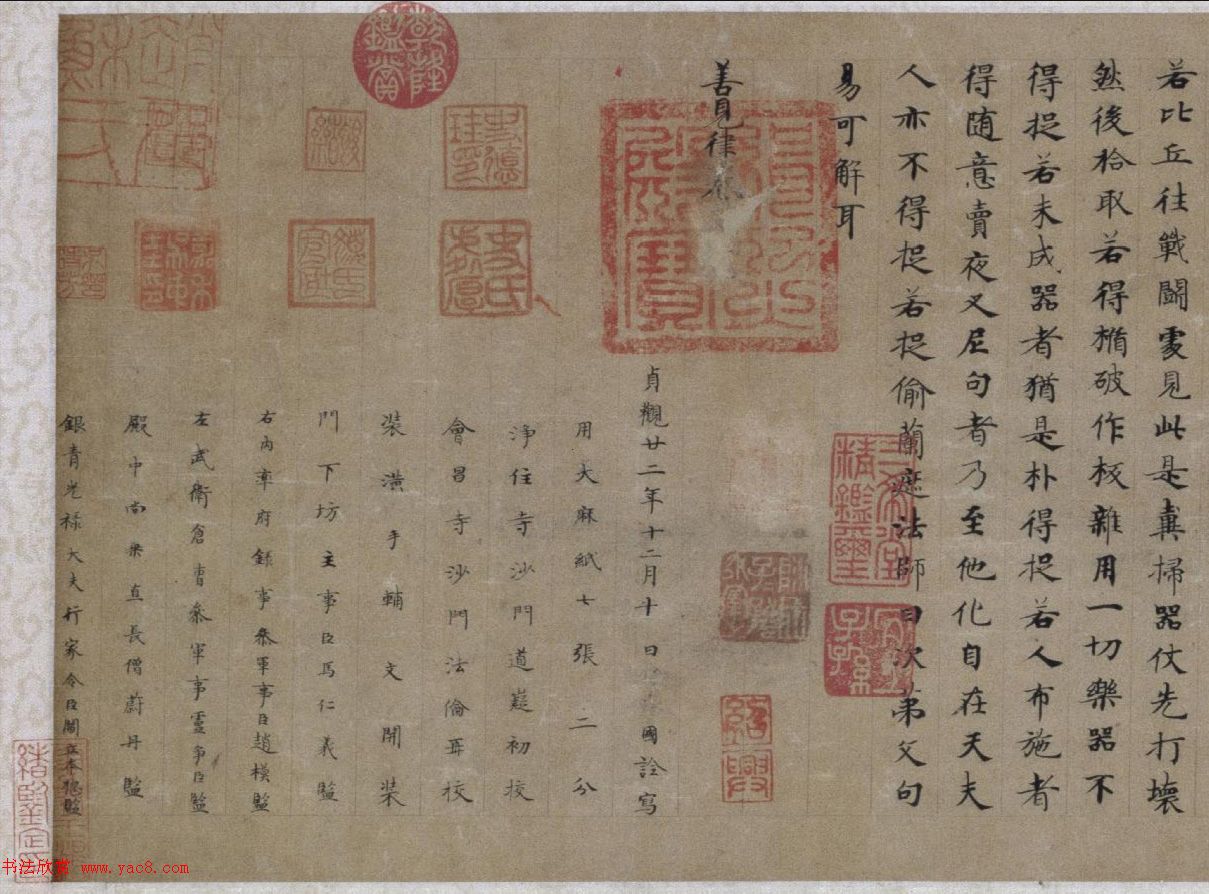 若比丘往戰鬪處見此是糞掃器仗先打壞
然後拾取若得楯破作板雜用一切樂器不
得捉若未成器者猶是朴得捉若人布施者
得随意賣夜叉尼句者乃至他化自在天夫
人亦不得捉若捉偷蘭遮法師曰次第父句
易可解耳
善見律卷
貞觀廿二年十二月十日國詮寫
用大麻紙七張二分
淨住寺沙門道嶷初挍
會昌寺沙門法倫再挍
裝潢手輔文開裝
門下坊主事臣馬仁義監
右內率府錄事參軍事臣趙模監
左武衛倉曹參軍事靈爭臣監
殿中尚乘直長僧蔚丹監
銀青光祿大夫行家令臣閻立本揔監
乾隆鑑賞
三希堂精鑑璽
宜子孫
紹興
史氏
书法欣赏 www.yac8.com